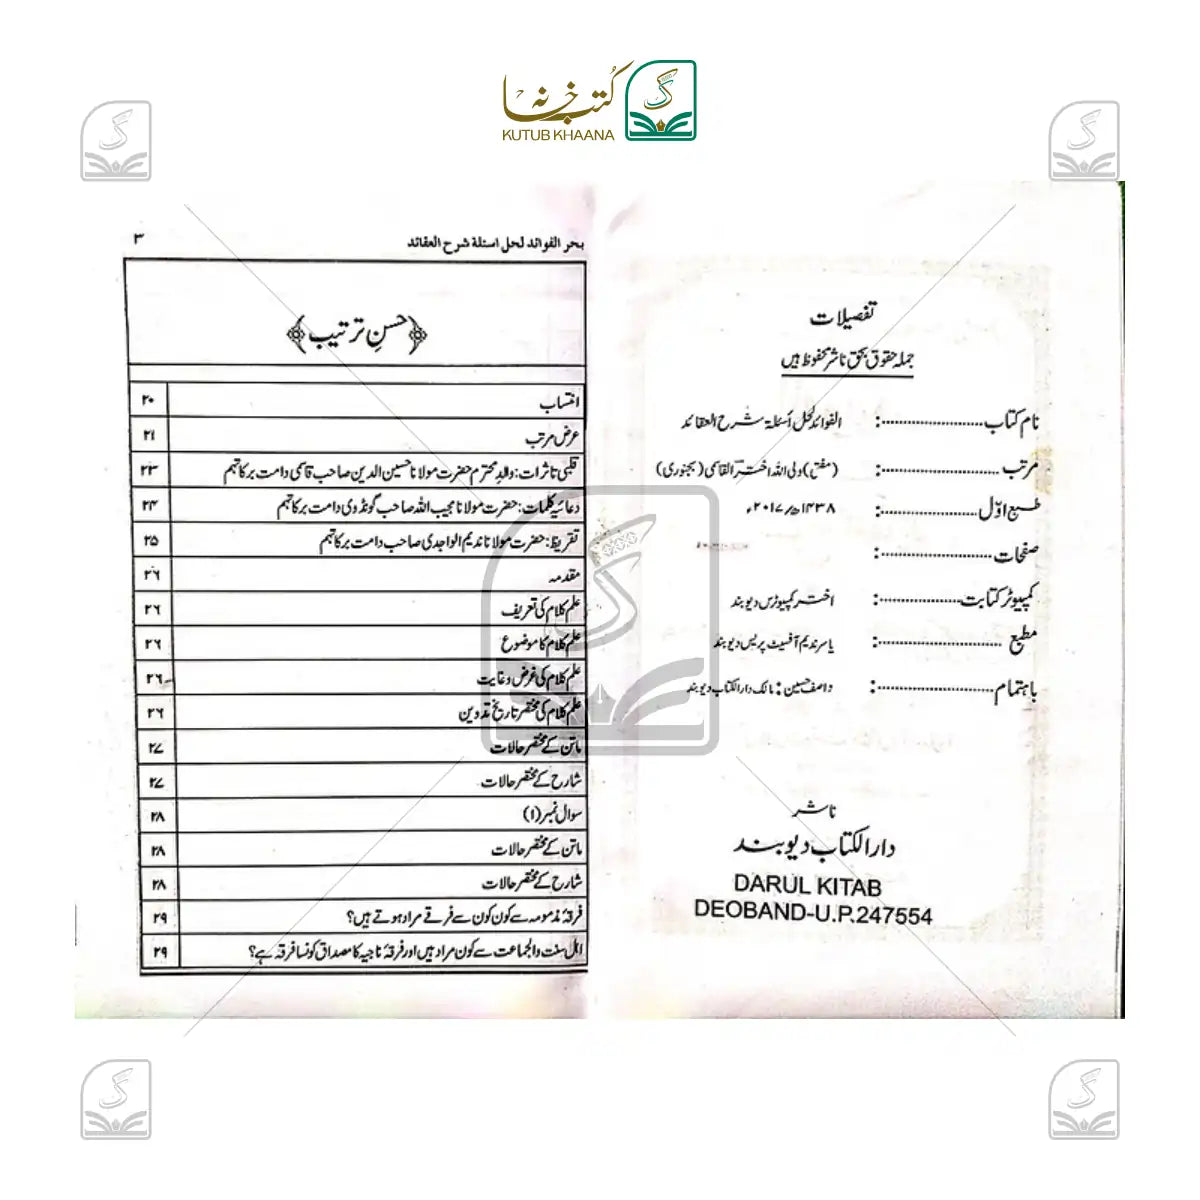 کتب خانہ
KUTUB KHAANA
تفصیلات
جملہ حقوق بحق ناشر محفوظ ہیں
نام کتاب ........................: الفوائد لحل أسئلۃ شرح العقائد
مرتب ........................: (مفتی) ولی اللہ اختر القاسمی (بجنوری)
طبع اوّل ........................: ۱۴۳۸ھ/۲۰۱۷ء
صفحات ........................:
کمپیوٹر کتابت ........................: اختر کمپیوٹرس دیوبند
مطبع ........................: یاسر ندیم آفسیٹ پریس دیوبند
باہتمام ........................: واصف حسین: مالک دارالکتاب دیوبند
ناشر
دارالکتاب دیوبند
DARUL KITAB
DEOBAND-U.P.247554
بحر الفوائد لحل اسئلة شرح العقائد ۳
حسنِ ترتیب
انتساب ۲۰
عرض مرتب ۲۱
قلبی تاثرات: والد محترم حضرت مولانا حسین الدین صاحب قاسمی دامت برکاتہم ۲۳
دعائیہ کلمات: حضرت مولانا مجیب اللہ صاحب گونڈوی دامت برکاتہم ۲۴
تقریظ: حضرت مولانا ندیم الواجدی صاحب دامت برکاتہم ۲۵
مقدمہ ۲۶
علم کلام کی تعریف ۲۶
علم کلام کا موضوع ۲۶
علم کلام کی غرض وغایت ۲۶
علم کلام کی مختصر تاریخ تدوین ۲۶
ماتن کے مختصر حالات ۲۷
شارح کے مختصر حالات ۲۷
سوال نمبر (۱) ۲۸
ماتن کے مختصر حالات ۲۸
شارح کے مختصر حالات ۲۸
فرقۂ مذمومہ سے کون کون سے فرقے مراد ہوتے ہیں؟ ۲۹
اہل سنت والجماعت سے کون مراد ہیں اور فرقۂ ناجیہ کا مصداق کونسا فرقہ ہے؟ ۲۹